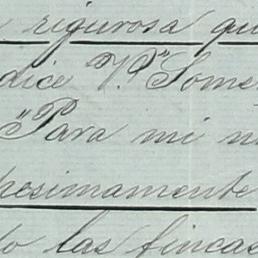 rigurosa qu
dice V. "Some
"Para mi n
pesimamente
do las fincas